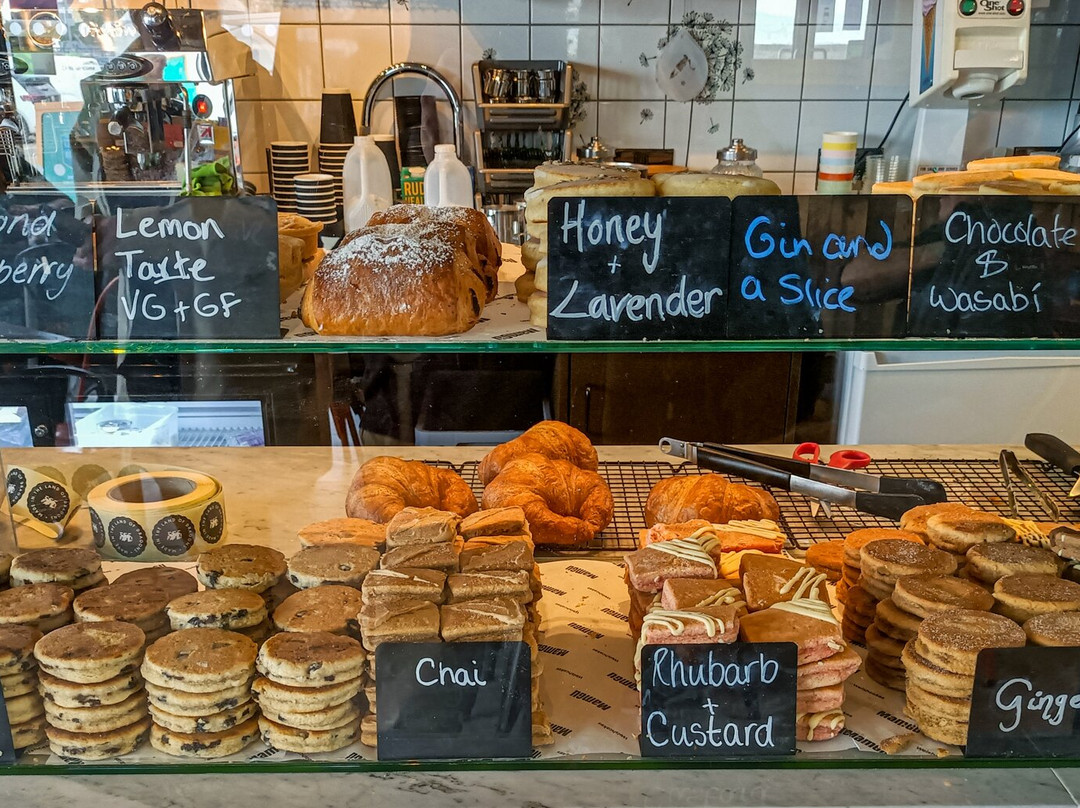 One
Shot
berry
Lemon
Tarte
VG + GF
Honey
+
Lavender
Gin and
a Slice
Chocolate
&
Wasabi
Chai
Rhubarb
+
Custard
Ginge